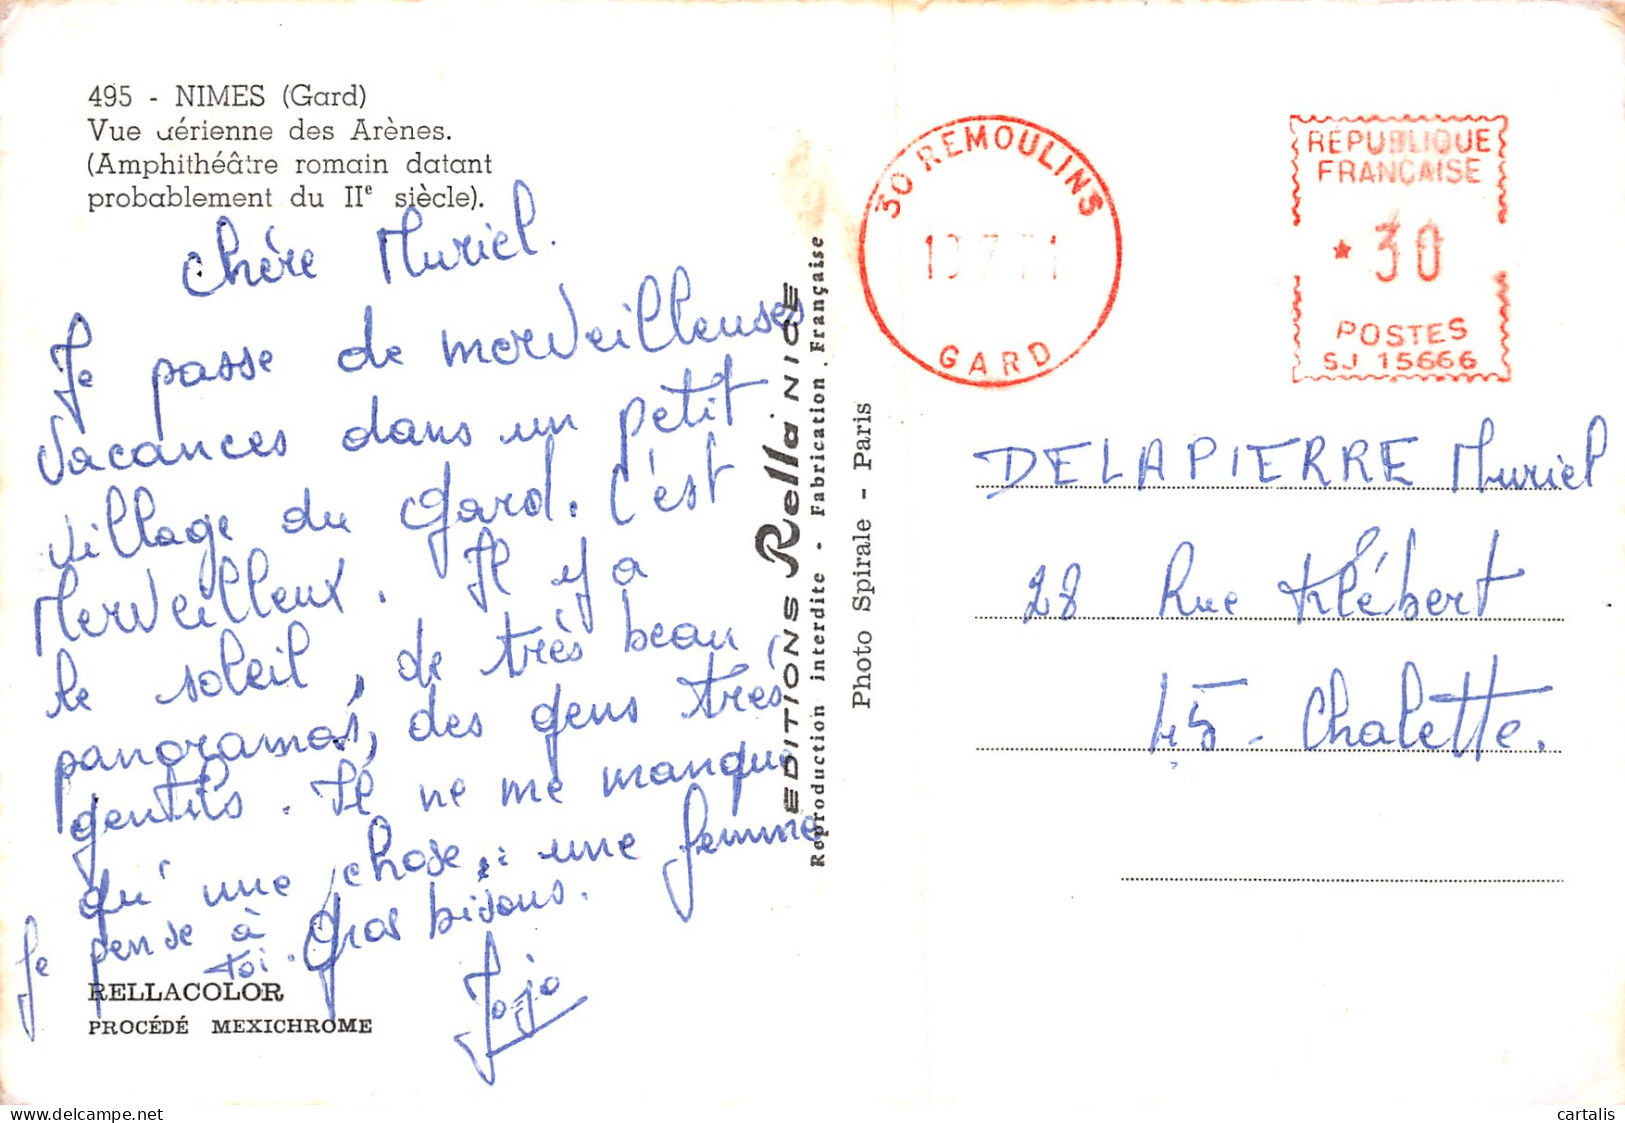 495 - NIMES (Gard)
Vue aérienne des Arènes.
(Amphithéâtre romain datant
probablement du IIe siècle).
Chère Muriel.
Je passe de merveilleuses
vacances dans un petit
village du Gard. C'est
Merveilleux. Il y a
le soleil, de très beau
panoramas, des gens très
gentils. Il ne me manque
qu'une chose : une femme
Je pense à
toi. Gros bisous.
Jojo
RELLACOLOR
PROCÉDÉ MEXICHROME
EDITIONS Rella NICE
Reproduction interdite - Fabrication Française
Photo Spirale - Paris
30 REMOULINS
GARD
RÉPUBLIQUE
FRANÇAISE
* 30
POSTES
SJ 15666
DELAPIERRE Muriel
28 Rue Klébert
45 - Chalette.
delcampe.net
cartalis